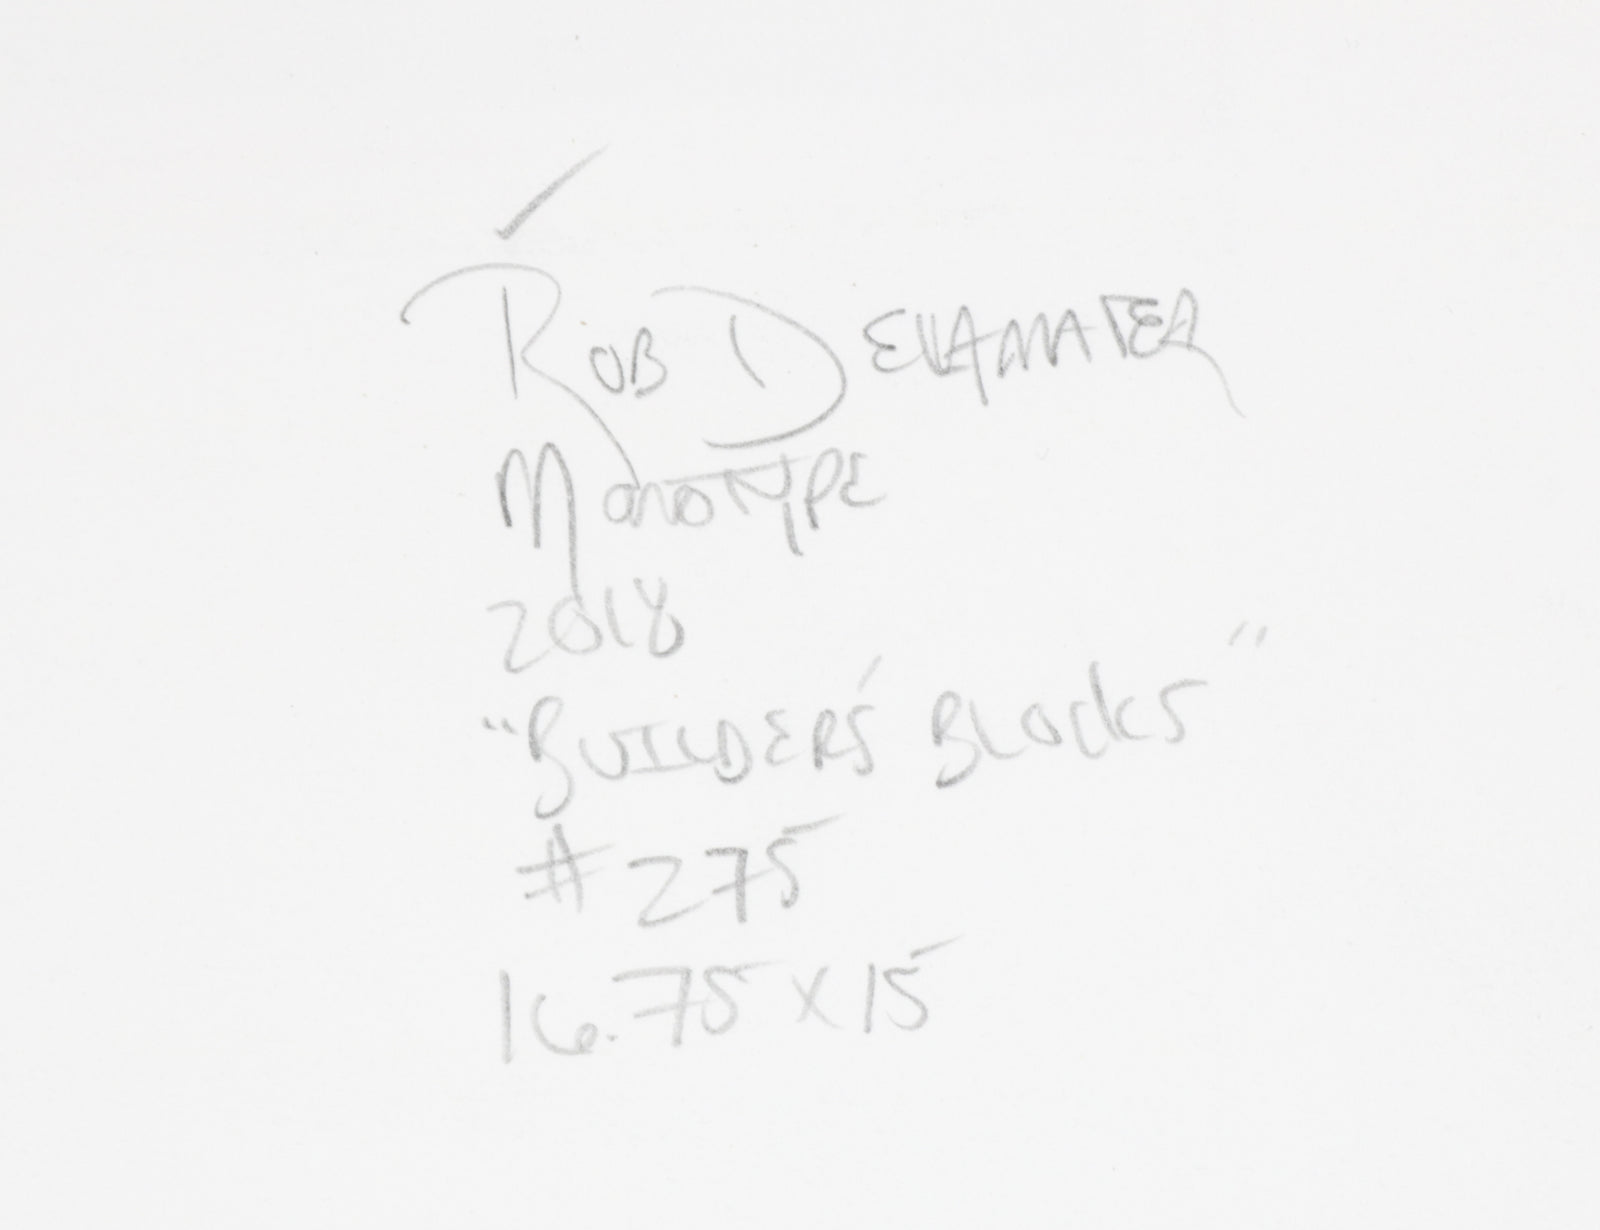 Rob Delamater
Monotype
2018
"Builder's Blocks"
#275
16.75 x 15